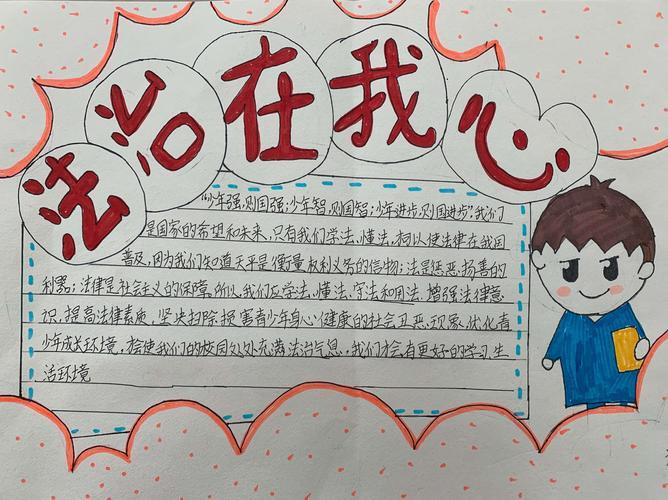 法治在我心
"少年强,则国强;少年智,则国智;少年进步,则国进步"。我们
是国家的希望和未来,只有我们学法、懂法,
普及,因为我们知道天平是衡量权利义务的信物;法是惩恶扬善的
利器;法律是社会主义的保障。所以,我们应学法、懂法、守法和用法,增强法律意
识,提高法律素质,坚决扫除损害青少年身心健康的社会丑恶现象,优化青
少年成长环境,才会使我们的校园处处充满法治气息,我们才会有更好的学习、生
活环境